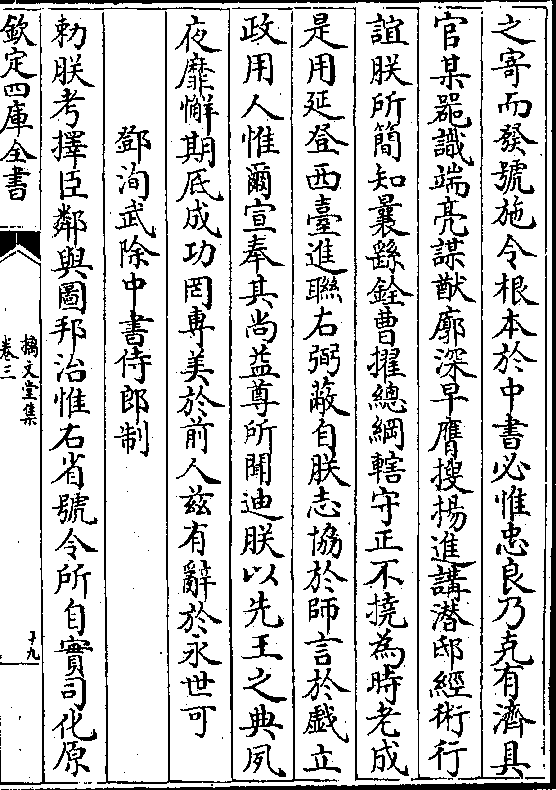 之寄而發號施令根本於中書必惟忠良乃克有濟具
官某器識端亮謀猷廓深早膺搜揚進講潛邸經術行
誼朕所簡知曩繇銓曹擢總綱轄守正不撓為時老成
是用延登西臺進聯右弼蔽自朕志協於師言於戲立
政用人惟爾宣奉其尚益尊所聞迪朕以先王之典夙
夜靡懈期厎成功罔專美於前人兹有辭於永世可
鄧洵武除中書侍郎制
勅朕考擇臣鄰與圖邦治惟右省號令所自實司化原
欽定四庫全書
摛文堂集
卷三
十九